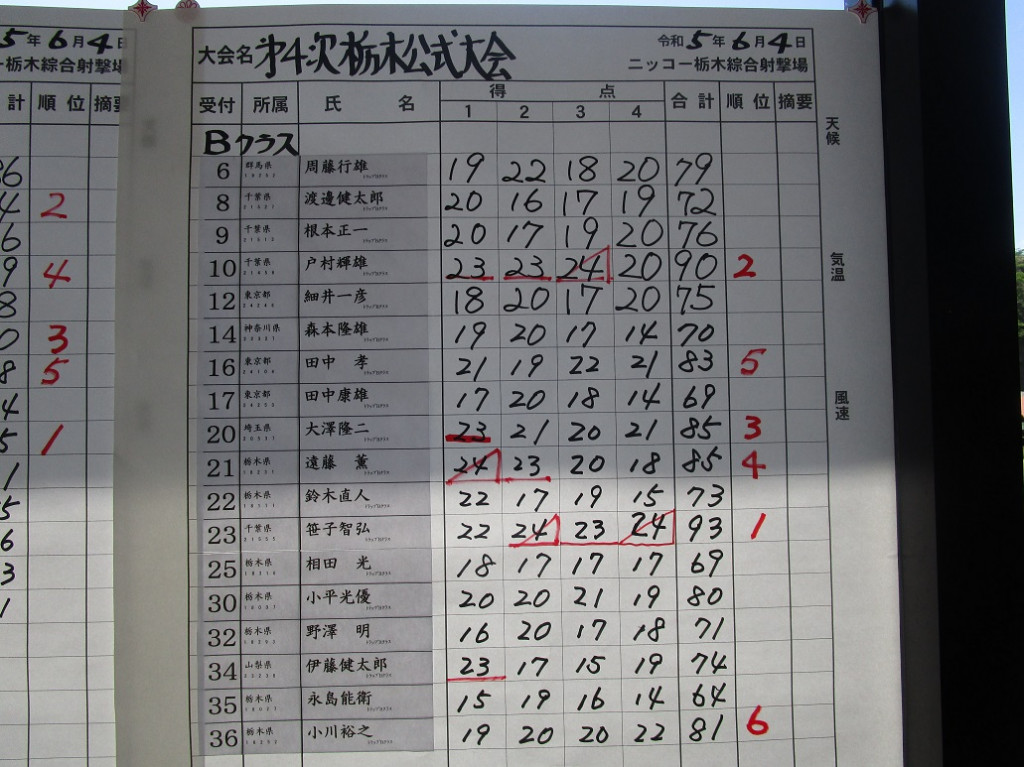 5年6月4日
ー栃木綜合射撃場
計 順位 摘要
36
4 2
6
9 4
8
0 3
8 5
4
5 1
1
5
6
3
1
大会名 第4次栃木公式大会 令和5年6月4日
ニッコー栃木綜合射撃場
受付 所属 氏名 得点 合計 順位 摘要
1 2 3 4
天候
気温
風速
Bクラス
6 群馬県 周藤行雄 19 22 18 20 79
8 千葉県 渡邊健太郎 20 16 17 19 72
9 千葉県 根本正一 20 17 19 20 76
10 千葉県 戸村輝雄 23 23 24 20 90 2
12 東京都 細井一彦 18 20 17 20 75
14 神奈川県 森本隆雄 19 20 17 14 70
16 東京都 田中 孝 21 19 22 21 83 5
17 東京都 田中康雄 17 20 18 14 69
20 埼玉県 大澤隆二 23 21 20 21 85 3
21 栃木県 遠藤 薫 24 23 20 18 85 4
22 栃木県 鈴木直人 22 17 19 15 73
23 千葉県 笹子智弘 22 24 23 24 93 1
25 栃木県 相田 光 18 17 17 17 69
30 栃木県 小平光優 20 20 21 19 80
32 栃木県 野澤 明 16 20 17 18 71
34 山梨県 伊藤健太郎 23 17 15 19 74
35 栃木県 永島能衛 15 19 16 14 64
36 栃木県 小川裕之 19 20 20 22 81 6